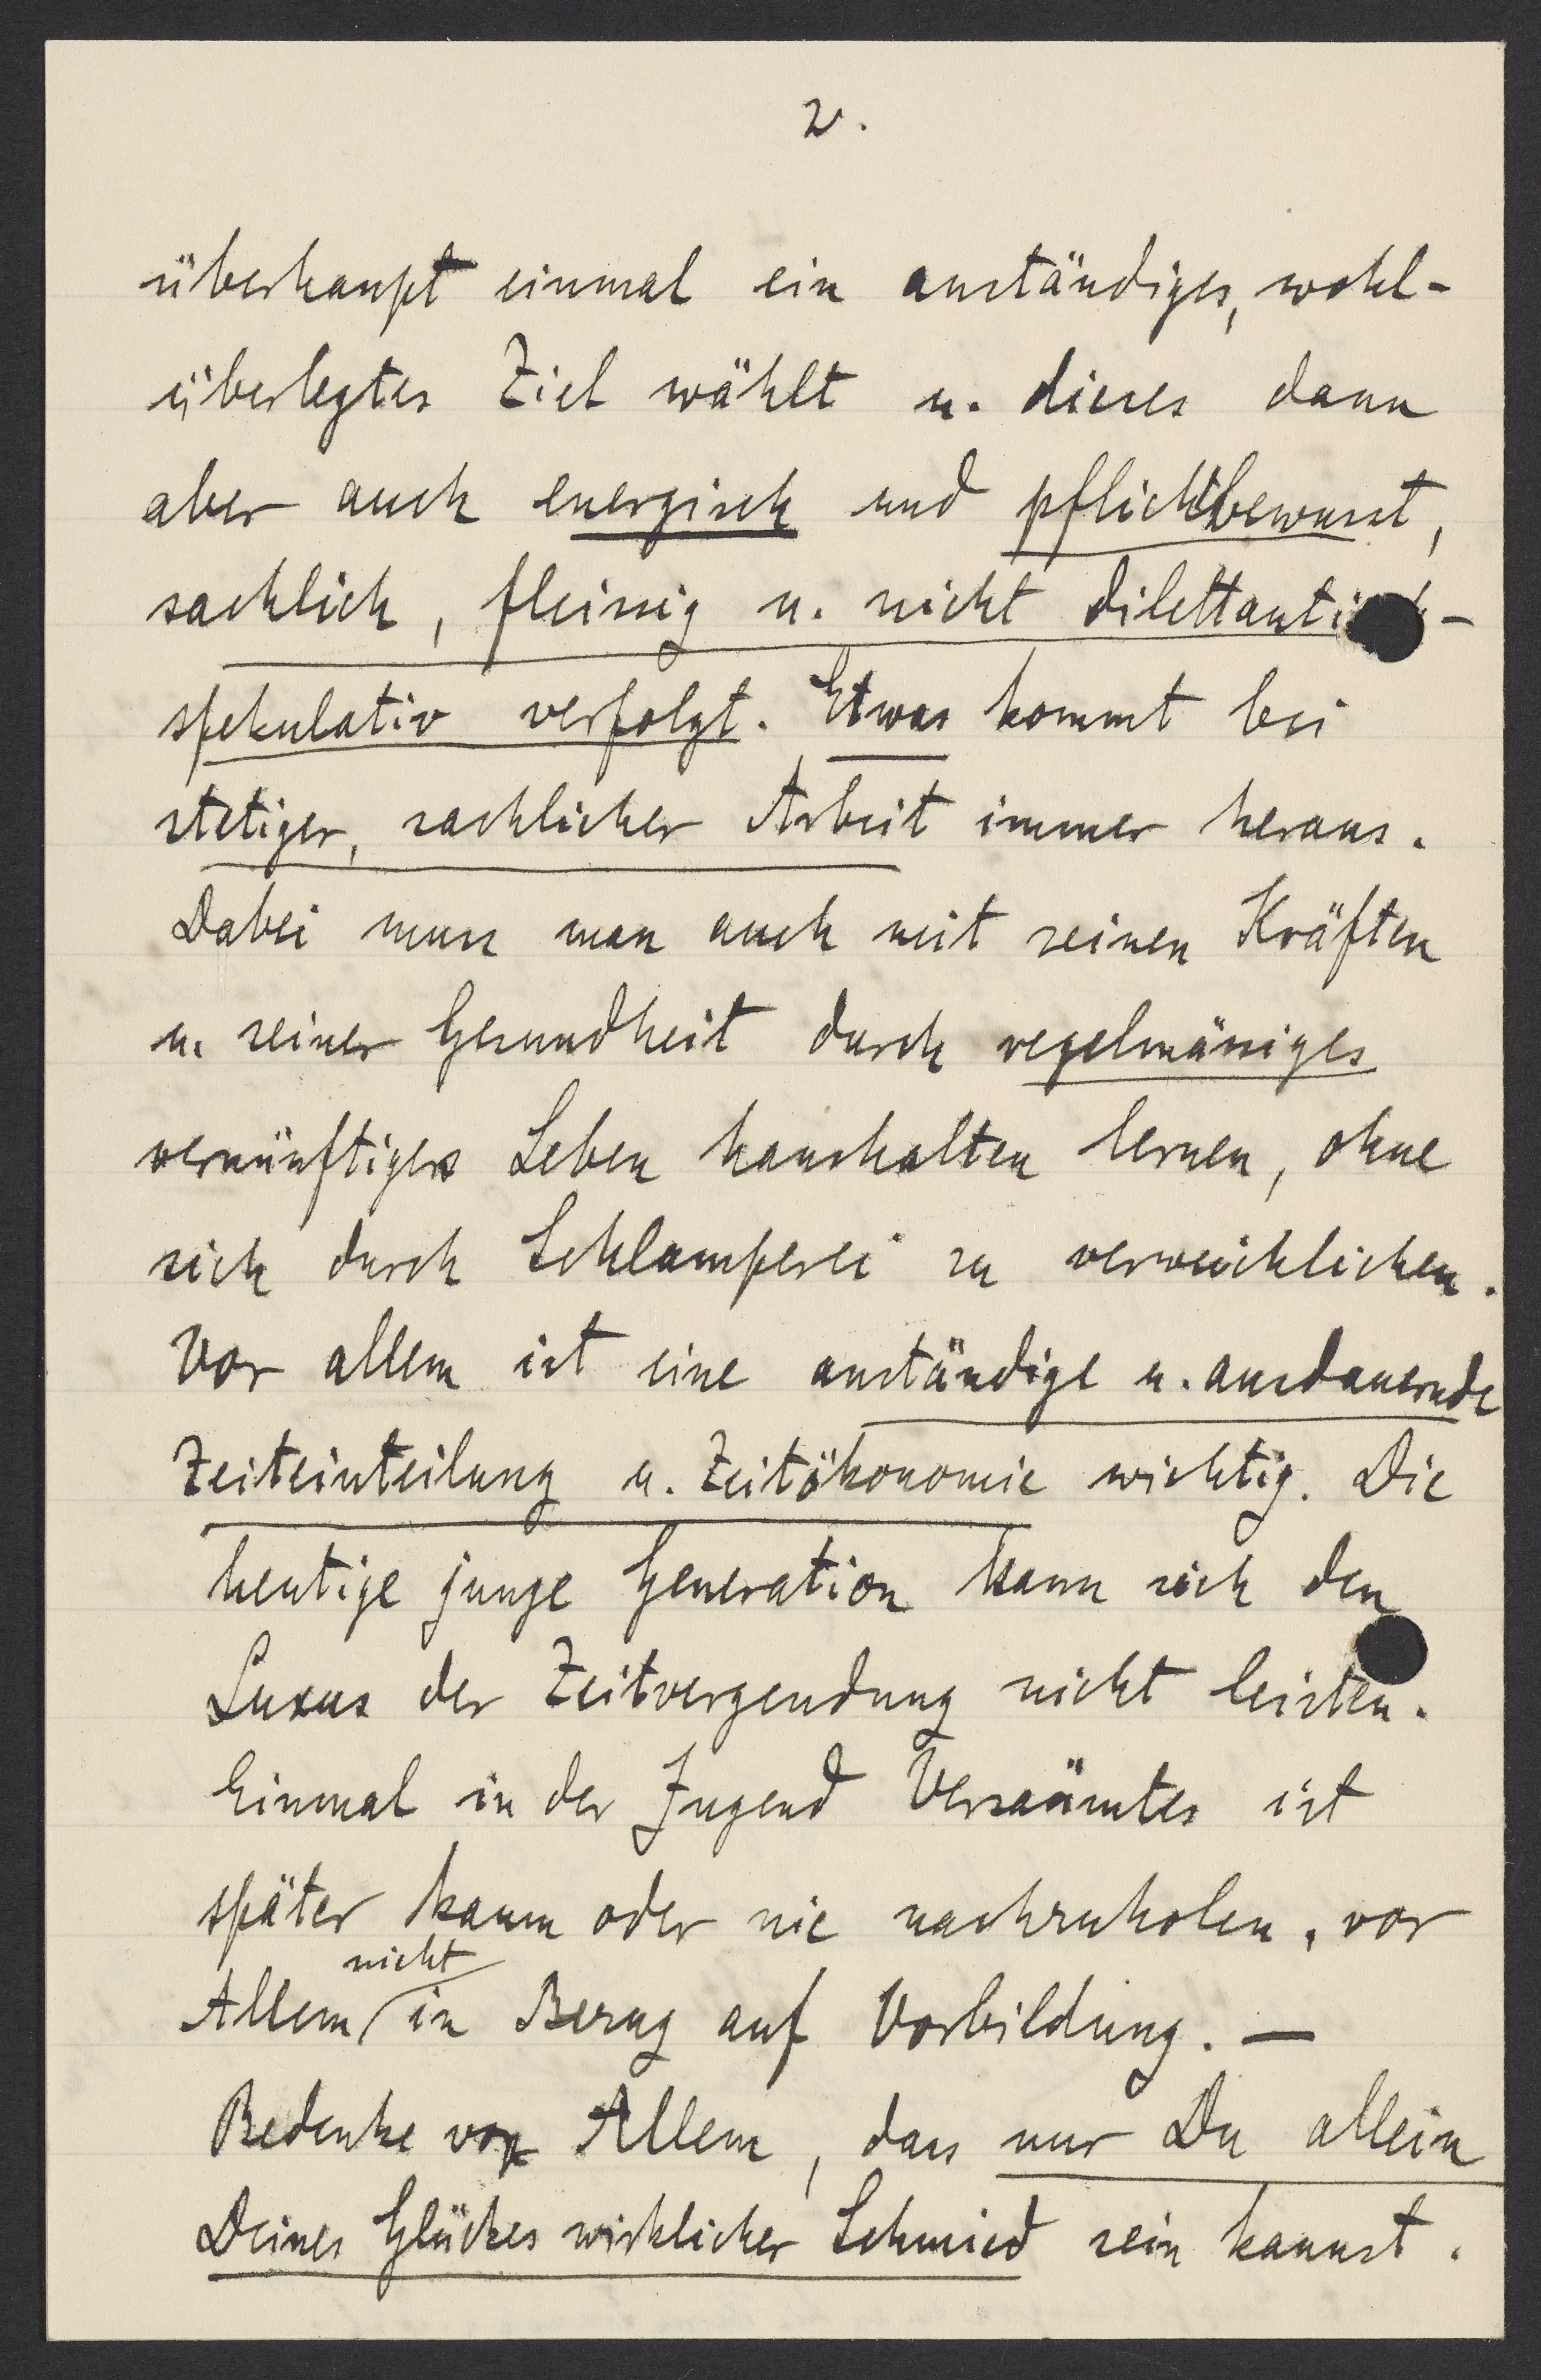 2.
überhaupt einmal ein anständiges, wohl-
überlegtes Ziel wählt u. dieses dann
aber auch energisch und pflichtbewusst,
sachlich, fleissig u. nicht dilettantisch-
spekulativ verfolgt. Etwas kommt bei
stetiger, sachlicher Arbeit immer heraus.
Dabei muss man auch mit seinen Kräften
u. seiner Gesundheit durch regelmässiges
vernünftiges Leben haushalten lernen, ohne
sich durch Schlamperei zu verweichlichen.
Vor allem ist eine anständige u. ausdauernde
Zeiteinteilung u. Zeitökonomie wichtig. Die
heutige junge Generation kann sich den
Luxus der Zeitvergendung nicht leisten.
Einmal in der Jugend Versäumtes ist
später kaum oder nie nachzuholen, vor
nicht
Allem in Bezug auf Vorbildung. —
Bedenke vor Allem, dass nur Du allein
Deines Glückes wirklicher Schmied sein kannst.